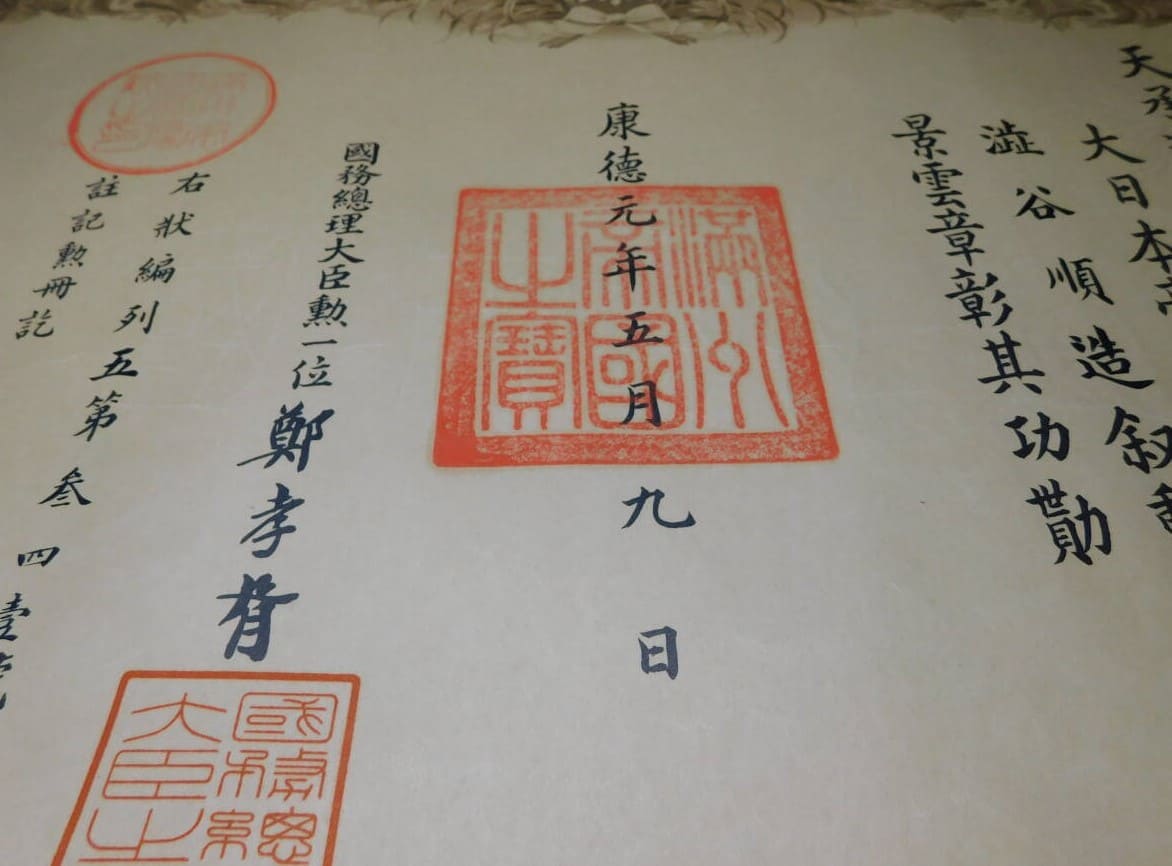 天承
大日本帝
澁谷順造叙
景雲章彰其功勩
康德元年五月九日
滿州
帝國
之寶
國務總理大臣勳一位鄭孝胥
國務總
大臣之
右狀編列五第叁四壹號
註記勳冊訖